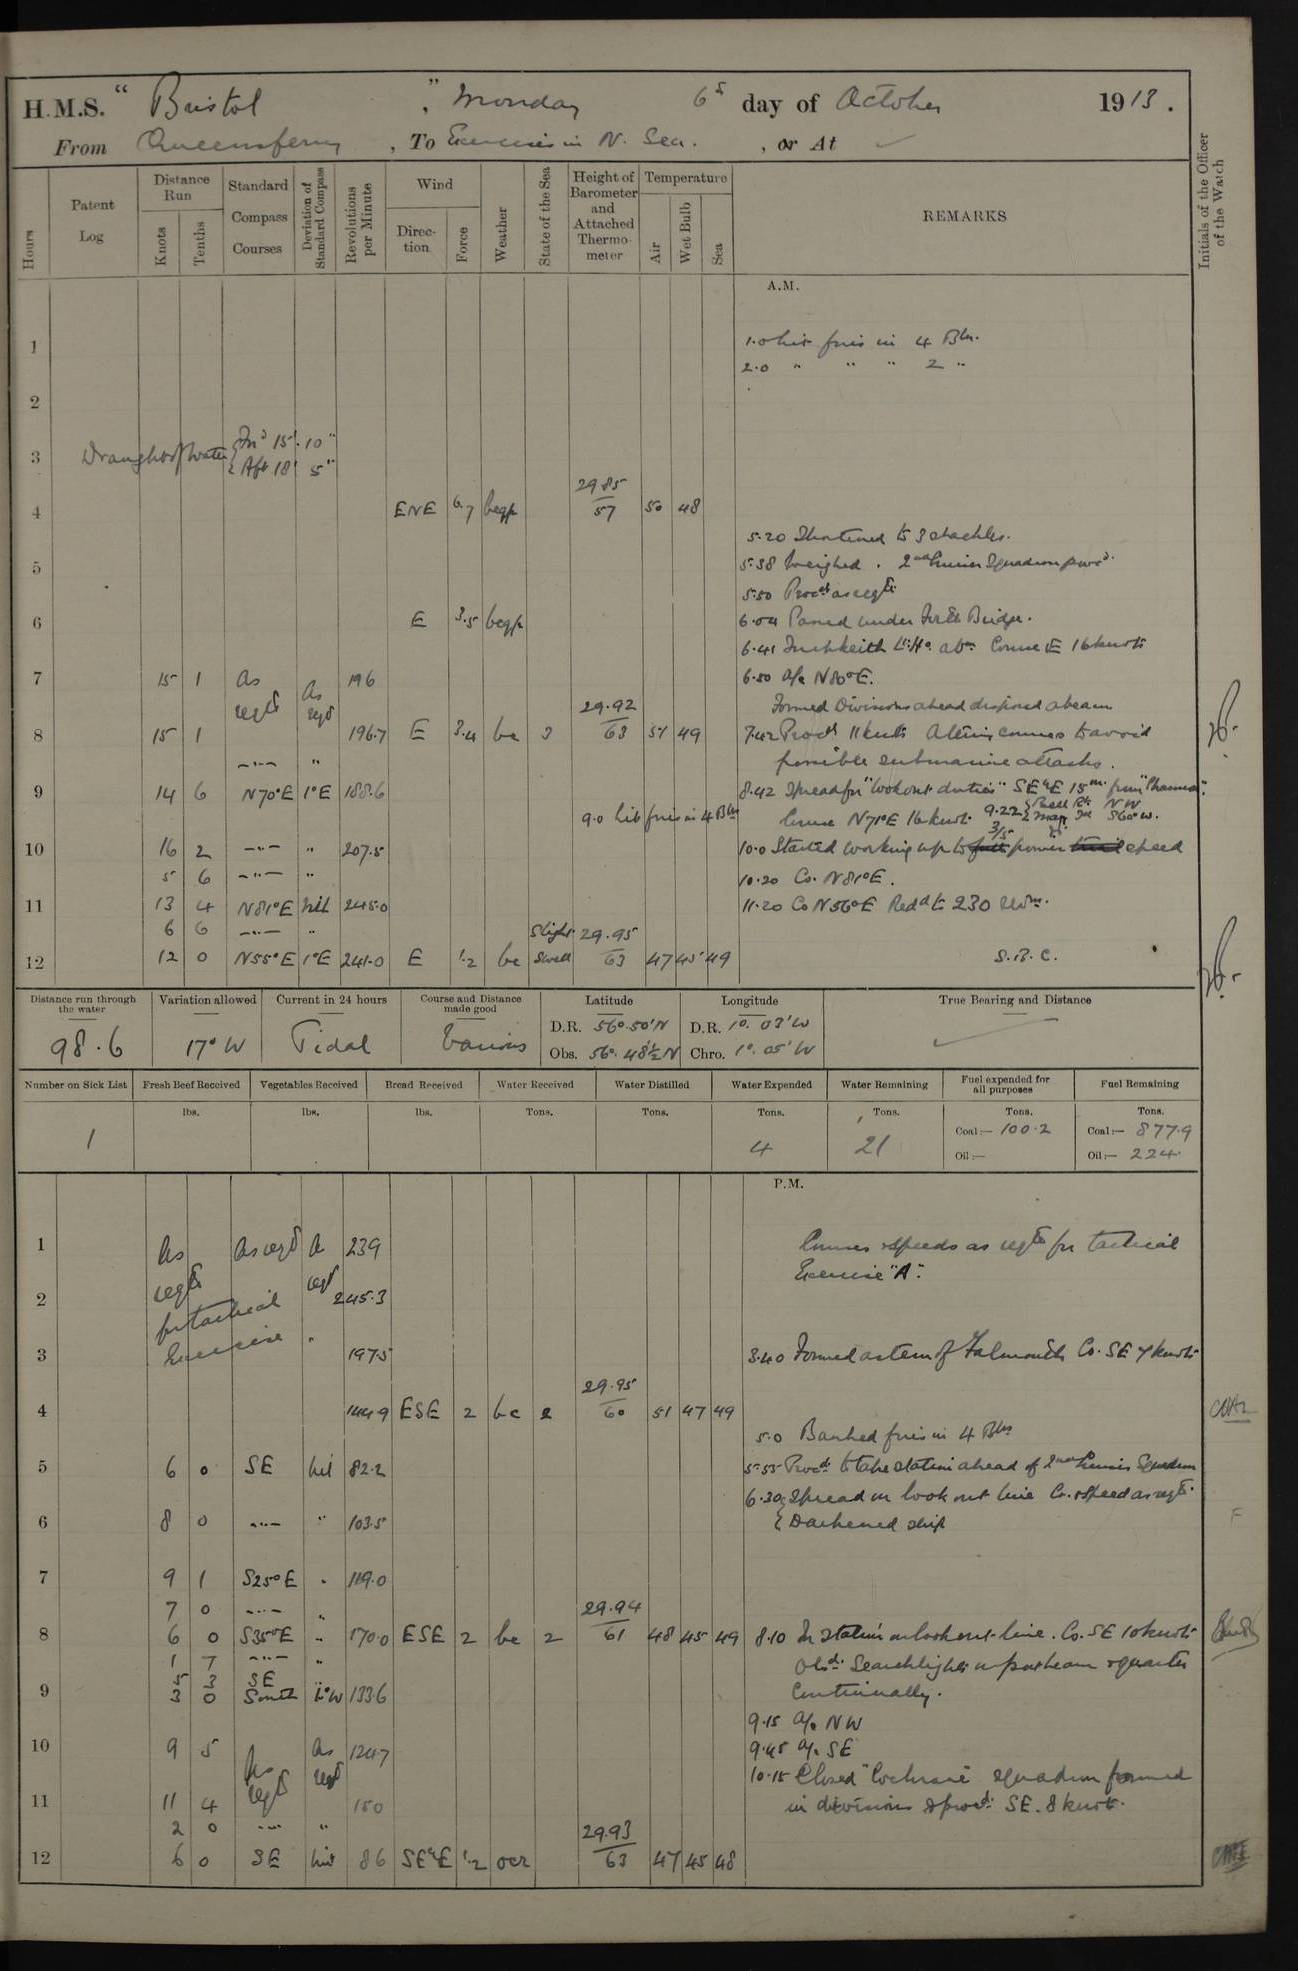 H.M.S. "Bristol", Monday 6th day of October 1913.
From Queensferry, To Exercises in N. Sea., or At ✓
Hours
Patent Log
Distance Run
Knots
Tenths
Standard Compass Courses
Deviation of Standard Compass
Revolutions per Minute
Wind
Direction
Force
Weather
State of the Sea
Height of Barometer and Attached Thermometer
Temperature
Air
Wet Bulb
Sea
REMARKS
Initials of the Officer of the Watch
A.M.
1 1.0 Lit fires in 4 Blrs.
2.0 " " " 2 "
2
Draught of Water { Fwd 15' 10"
3 { Aft 18' 5"
4 ENE 6.7 bcqp 29.85/57 50 48
5.20 Shortened to 3 shackles.
5 5.38 Weighed. 2nd Cruiser Squadron procd.
5.50 Procd as reqd.
6 E 3.5 bcqp 6.04 Passed under Forth Bridge.
6.41 Inchkeith Lt. Ho. abm. Course E 16 knots
7 15 1 As reqd As reqd 196 6.50 a/c N80°E.
Formed Divisions ahead disposed abeam
8 15 1 196.7 E 3.4 bc 3 29.92/63 51 49 7.42 Procd 11 knots Altering courses to avoid
possible submarine attacks.
9 14 6 N70°E 1°E 188.6 8.42 Spread for "look out duties" SE"E 15m. from
9.0 Lit fires in 4 Blrs Course N71°E 16 knots. 9.22 NW S60°W.
10 16 2 " " 207.5 10.0 Started working up to 3/5 full power trial speed
5 6 " " 10.20 Co. N81°E.
11 13 4 N81°E Nil 245.0 11.20 Co N56°E Redd to 230 revns.
6 6 " "
12 12 0 N55°E 1°E 241.0 E 1.2 bc Slight Swell 29.95/63 47 45 49 S.B.C.
Distance run through the water 98.6
Variation allowed 17° W
Current in 24 hours Tidal
Course and Distance made good Various
Latitude D.R. 56°.50'N Obs. 56°.48½'N
Longitude D.R. 1°.03'W Chro. 1°.05'W
True Bearing and Distance
Number on Sick List 1
Fresh Beef Received lbs.
Vegetables Received lbs.
Bread Received lbs.
Water Received Tons.
Water Distilled Tons.
Water Expended Tons. 4
Water Remaining Tons. 21
Fuel expended for all purposes Tons. Coal:— 100.2 Oil:—
Fuel Remaining Tons. Coal:— 877.9 Oil:— 224
P.M.
1 As reqd As reqd As reqd 239 Courses & speeds as reqd for tactical
Exercise "A".
2 for tactical 245.3
3 Exercise " 197.5 3.40 Formed astern of Falmouth Co. SE 7 knots
4 144.9 ESE 2 bc 2 29.95/60 51 47 49
5.0 Banked fires in 4 Blrs
5 6 0 SE Nil 82.2 5.55 Procd. to take station ahead of 2nd Cruiser Squadron
6.30 { Spread on look out line Co. & speed as reqd.
6 8 0 " " 103.5 { Darkened ship
7 9 1 S25°E " 119.0
7 0 " "
8 6 0 S35°E " 170.0 ESE 2 bc 2 29.94/61 48 45 49 8.10 In station on look out line. Co. SE 10 knots
1 7 " " Obsd. Searchlights on port beam & quarter
5 3 SE continually.
9 3 0 South 133.6
9.15 a/c NW
10 9 5 As reqd As reqd 124.7 9.45 a/c SE
10.15 Closed "Cochrane" squadron formed
11 11 4 150 in divisions & procd. SE. 8 knots.
2 0 " "
12 6 0 SE Nil 86 SE"E 1.2 ocr 29.93/63 47 45 48